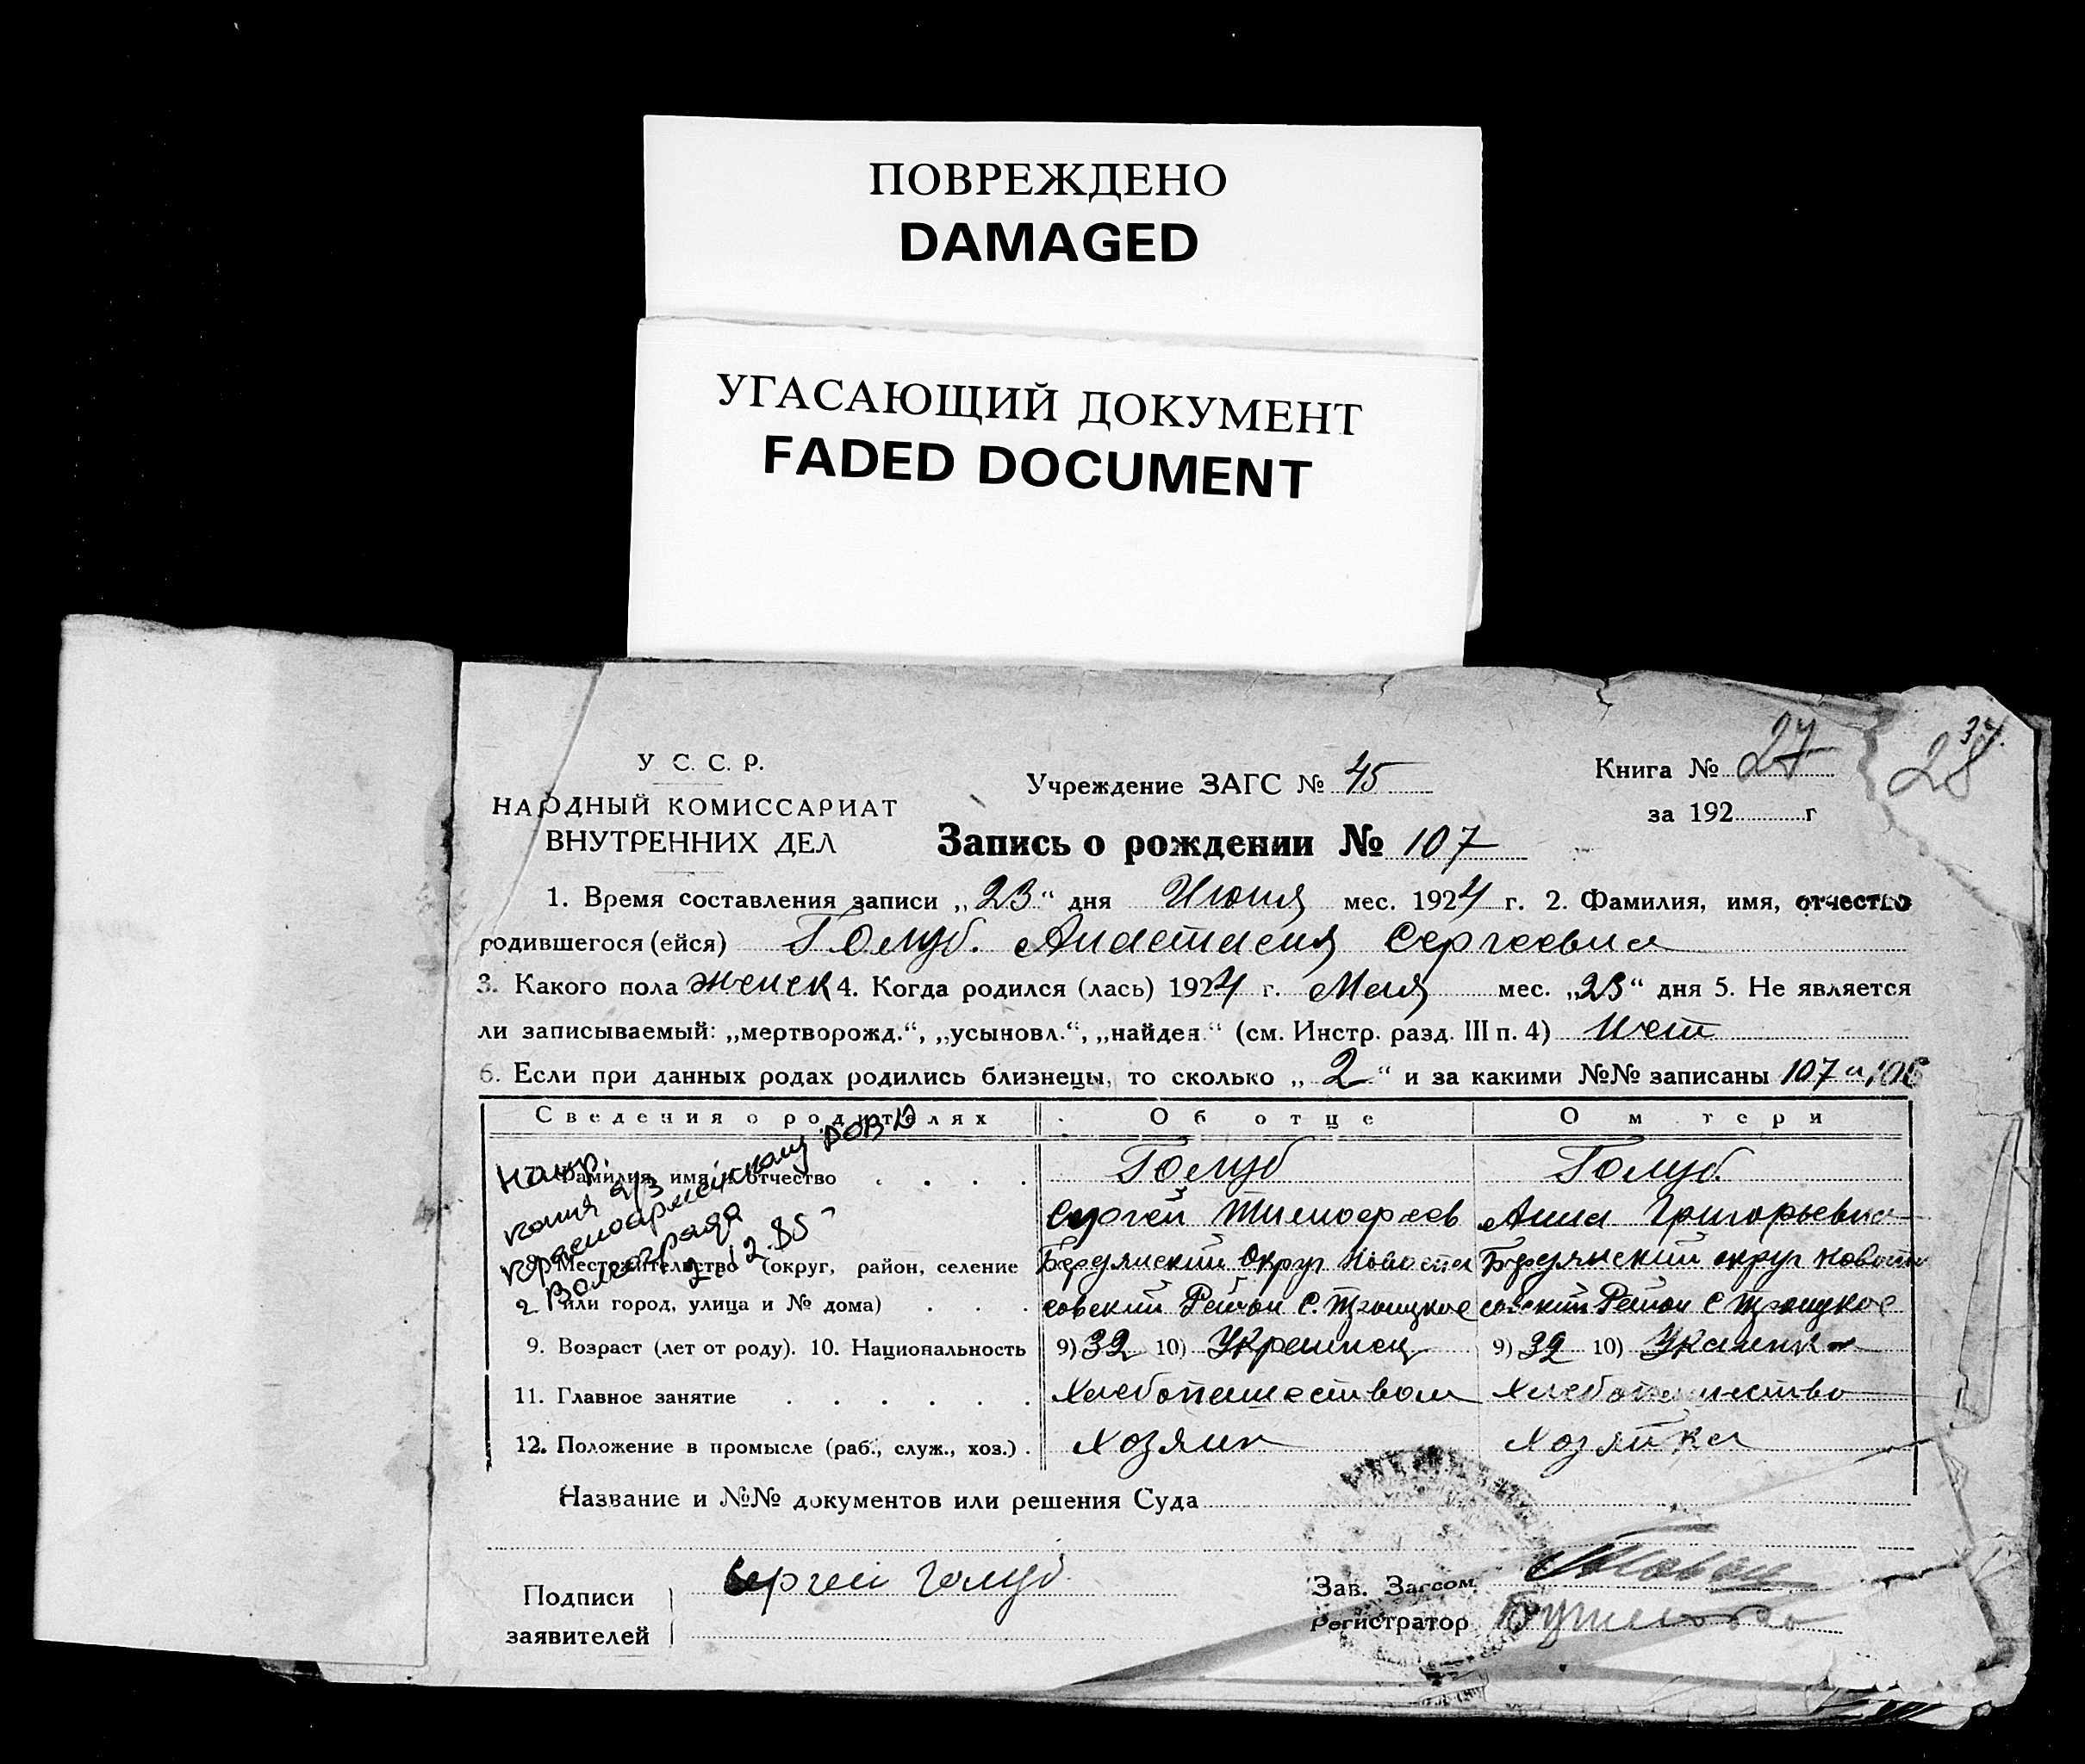 ПОВРЕЖДЕНО
DAMAGED
УГАСАЮЩИЙ ДОКУМЕНТ
FADED DOCUMENT
У С. С. Р.
НАРОДНЫЙ КОМИССАРИАТ
ВНУТРЕННИХ ДЕЛ
Учреждение ЗАГС № 45
Книга № 27
28
37.
за 192 г
Запись о рождении № 107
1. Время составления записи „23“ дня Июня мес. 1924 г. 2. Фамилия, имя, отчество
родившегося (ейся) Голуб. Анастасия Сергеевна
3. Какого пола женск 4. Когда родился (лась) 1924 г. Мая мес. „23“ дня 5. Не является
ли записываемый: „мертворожд.“, „усыновл.“, „найден.“ (см. Инстр. разд. III п. 4) Нет
6. Если при данных родах родились близнецы, то сколько „2“ и за какими №№ записаны 107 и 106
Сведения о родителях Об отце О м тери
Фамилия, имя и отчество Голуб Голуб.
Сергей Тимофеев Анна Григорьевна
8) Местожительство (округ, район, селение Бердянский Округ Новоспа Бердянский округ Новоспа
или город, улица и № дома) совский Район С. Троицкое совский Район С Троицкое
9. Возраст (лет от роду). 10. Национальность 9) 32 10) Украинец 9) 32 10) Украинка
11. Главное занятие Хлебопашеством Хлебопашество
12. Положение в промысле (раб., служ., хоз.) Хозяин Хозяйка
Напр.
копия я/з
Красноармейскому РОВД
г Волгограда
2.12.85
Название и №№ документов или решения Суда
Подписи
заявителей
Сергей Голуб
Зав. Загсом
Регистратор